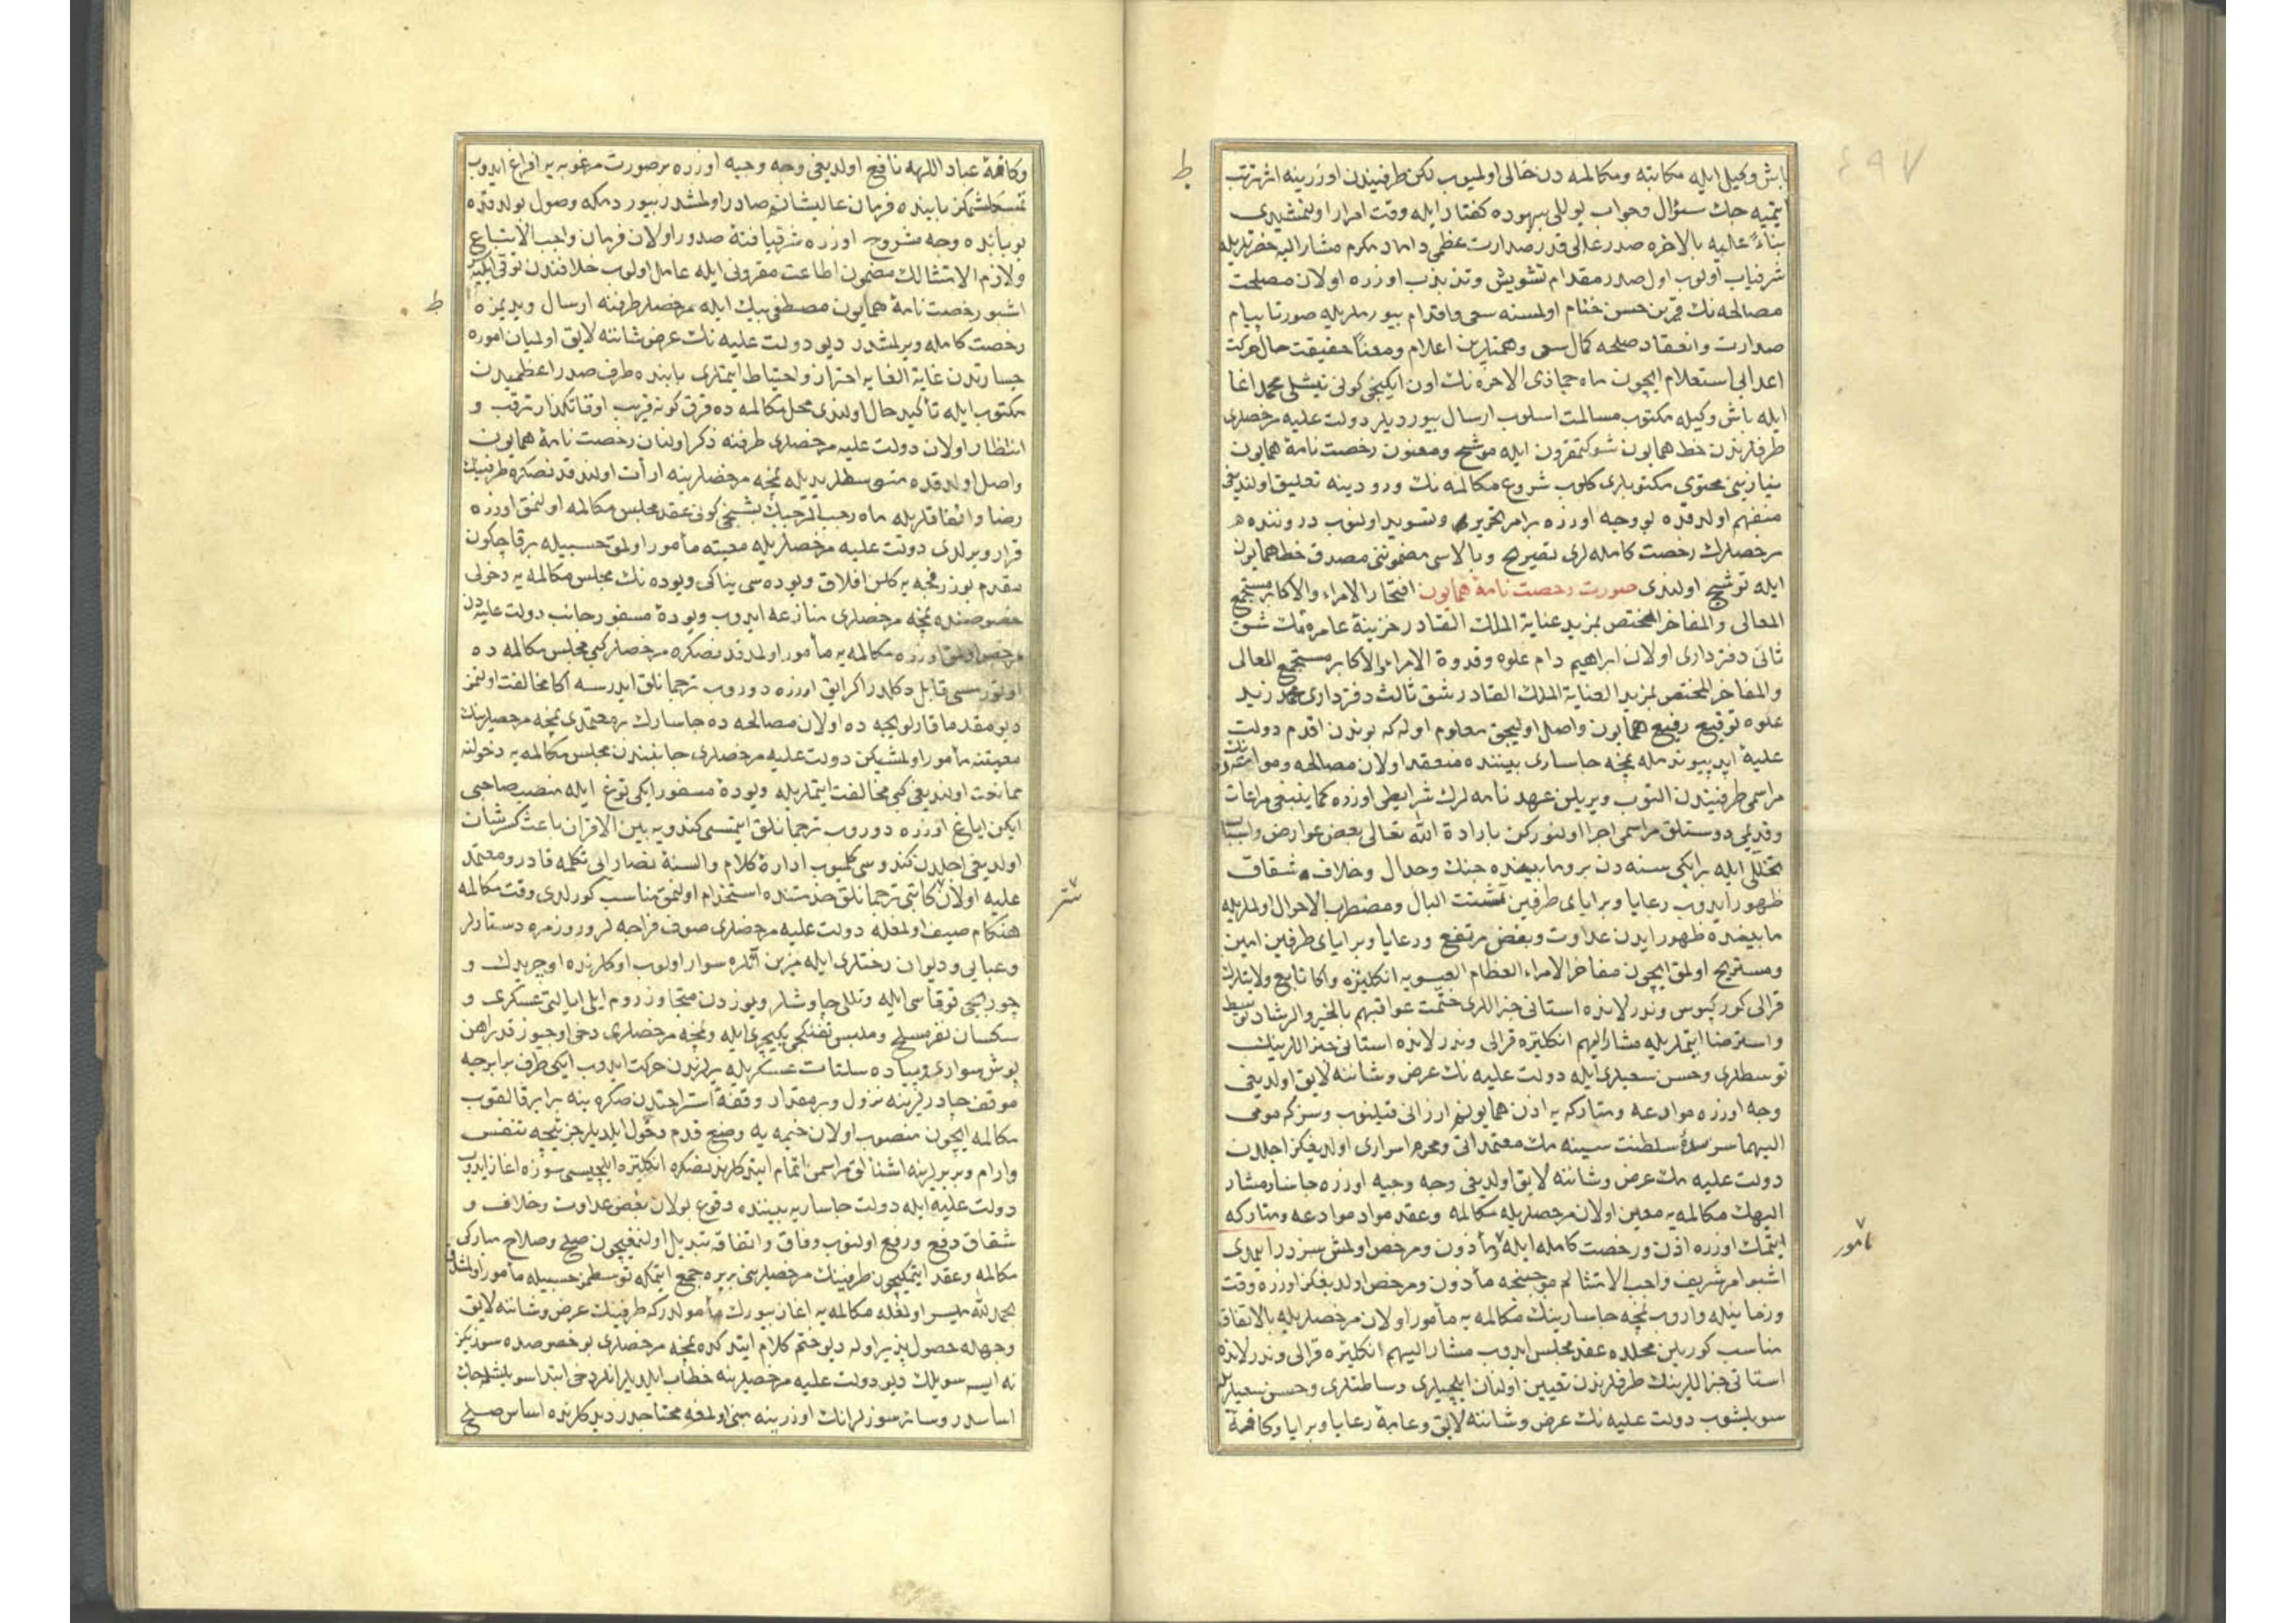 ٤٩٧
باش وكیل ایله مكاتبه ومكالمه دن خالی اولمیوب لكن طرفیندن اوزرینه اثر ترتب
ایتمیه جك سؤال وجواب یوللی بیهوده كفتار ایله وقت امرار اولنمشیدی
بناءً علیه بالاخره صدر عالی قدر صدارت عظمی داماد مكرم مشار الیه حضرتلریله
شرفیاب اولوب اول صدر مقدام تشویش وتذبذب اوزره اولان مصلحت
مصالحه نك قرین حسن ختام اولمسنه سعی واقدام بیوررلریله صورتا پیام
صدارت وانعقاد صلحه كمال سعی وهمتلرین اعلام ومعناً حقیقت حال حركت
اعدایی استعلام ایچون ماه جماذی الاخره نك اون ایكنجی كونی تیشلی محمد اغا
ایله باش وكیله مكتوب مسالمت اسلوب ارسال بیوردیلر دولت علیه مرخصلری
طرفلرندن خط همایون شوكتمقرون ایله موشح ومعنون رخصت نامهٔ همایون
نیازینی محتوی مكتوبلری كلوب شروع مكالمه نك ورودینه تعلیق اولندیغی
منفهم اولدقده بو وجه اوزره بر امر تحریر وتسوید اولنوب دروننده
مرخصلرك رخصت كامله لری تصریح وبالاسی مضموننی مصدق خط همایون
ایله توشیح اولندی صورت رخصت نامهٔ همایون افتخار الامراء والاكابر مستجمع
المعالی والمفاخر المختص بمزید عنایة الملك القادر خزینهٔ عامره مك شق
ثانی دفترداری اولان ابراهیم دام علوه وقدوة الامراء والاكابر مستجمع المعالی
والمفاخر المختص بمزید العنایة الملك القادر شق ثالث دفترداری محمد زید
علوه توقیع رفیع همایون واصل اولیجق معلوم اوله كه بوندن اقدم دولت
علیهٔ ابد پیوندمله نمچه جاساری بیننده منعقد اولان مصالحه وموادعه نك
مراسمی طرفیندن النوب ویریلن عهدنامه لرك شرایطی اوزره كما ینبغی مراعات
وقدیمی دوستلق مراسمی اجرا اولنوركن بارادة الله تعالی بعض عوارض واسباب
تخللی ایله بر ایكی سنه دن برو مابینده جنك وجدال وخلاف وشقاق
ظهور ایدوب رعایا وبرایای طرفین تشتت البال ومضطرب الاحوال اولملریله
مابینده ظهور ایدن عداوت وبغض مرتفع ورعایا وبرایای طرفین امین
ومستریح اولمق ایچون مفاخر الامراء العظام العیسویه انكلتره واكا تابع ولایتلرك
قرالی كوركیوس وندرلانده استاتی جنراللری ختمت عواقبهم بالخیر والرشاد توسط
واسترضا ایتملریله مشار الیهم انكلتره قرالی وندرلانده استاتی جنراللرینك
توسطلری وحسن سعیلری ایله دولت علیه نك عرض وشاننه لایق اولدیغی
وجه اوزره موادعه ومتاركه یه اذن همایونم ارزانی قیلنوب وسز كه مومی
الیهماسز سدهٔ سلطنت سنیه مك معتمداتی ومحرم اسراری اولدیغكز اجلدن
دولت علیه مك عرض وشاننه لایق اولدیغی وجه وجیه اوزره جاسار مشار
الیهك مكالمه یه معین اولان مرخصلریله مكالمه وعقد مواد موادعه ومتاركه
ایتمك اوزره اذن ورخصت كامله ایله مأذون ومرخص اولمش سزدر ایمدی
اشبو امر شریف واجب الامتثالم موجبنجه مأذون ومرخص اولدیغكز اوزره وقت
وزمانیله واروب نمچه جاسارینك مكالمه یه مأمور اولان مرخصلریله بالاتفاق
مناسب كوریلن محلده عقد مجلس ایدوب مشار الیهم انكلتره قرالی وندرلانده
استاتی جنراللرینك طرفلرندن تعیین اولنان ایلچیلری وساطتلری وحسن سعیلریله
سویلشوب دولت علیه نك عرض وشاننه لایق وعامهٔ رعایا وبرایا وكافهٔ
ط
مأمور
وكافهٔ عباد اللهه نافع اولدیغی وجه وجیه اوزره بر صورت مرغوبه یه افراغ ایدوب
تمسكلشمكز بابنده فرمان عالیشانم صادر اولمشدر بیوردمكه وصول بولدقده
بو بابده وجه مشروح اوزره شرفیافتهٔ صدور اولان فرمان واجب الاتباع
ولازم الامتثالك مضمون اطاعت مقرونی ایله عامل اولوب خلافندن توقی ایلیه سز
اشبو رخصت نامهٔ همایون مصطفی بیك ایله مرخصلر طرفنه ارسال ویدیمزه
رخصت كامله ویرلمشدر دیو دولت علیه نك عرض شاننه لایق اولمیان اموره
جسارتدن غایة الغایه احتراز واحتیاط ایتملری بابنده طرف صدر اعظمیدن
مكتوب ایله تأكید حال اولندی محل مكالمه ده قرق كونه قریب اوقاتكذار ترقب و
انتظار اولان دولت علیه مرخصلری طرفنه ذكر اولنان رخصت نامهٔ همایون
واصل اولدقده متوسطلر یدیله نمچه مرخصلرینه ارائت اولندقدنصكره طرفینك
رضا واتفاقلریله ماه رجب المرجبك بشنجی كونی عقد مجلس مكالمه اولنمق اوزره
قرار ویرلدی دولت علیه مرخصلریله معیته مأمور اولمق حسبیله برقاچ كون
مقدم بوزرفچه یه كلن افلاق ویوده سی یناكی ویوده نك مجلس مكالمه یه دخولی
خصوصنده نمچه مرخصلری منازعه ایدوب ویودهٔ مسفور جانب دولت علیه دن
مرخص اولمق اوزره مكالمه یه مأمور اولمدقدنصكره مرخصلر كبی مجلس مكالمه ده
اوتورمسی قابل دكلدر اكر ایاق اوزره دوروب ترجمانلق ایدرسه اكا مخالفت اولنمز
دیو مقدما قارلوفچه ده اولان مصالحه ده جاسارك بر معتمدی نمچه مرخصلرینك
معیتنه مأمور اولمشیكن دولت علیه مرخصلری جانبندن مجلس مكالمه یه دخولنه
ممانعت اولندیغی كبی مخالفت ایتملریله ویودهٔ مسفور ایكی توغ ایله منصب صاحبی
ایكن ایاغ اوزره دوروب ترجمانلق ایتمسی كندویه بین الاقران باعث كسر شان
اولدیغی اجلدن كندوسی كلمیوب ادارهٔ كلام والسنهٔ نصارایی تكلمه قادر ومعتمد
علیه اولان كاتبی ترجمانلق خدمتنده استخدام اولنمق مناسب كورلدی وقت مكالمه
هنكام صیف اولمغله دولت علیه مرخصلری صوف فراجه لر وروزمره دستارلر
وعبایی ودیوان رختلری ایله مزین اتلره سوار اولوب اوكلرنده اوچر یدك و
چوربجی توقاسی ایله وتللی چاوشلر ویوزدن متجاوز روم ایلی ایالتی عسكری و
سكسان نفر مسلح وملبس تفنكچی یكیچری ایله ونمچه مرخصلری دخی اوچیوز قدر اهن
پوش سواری وپیاده سلتات عسكریله یرلرندن حركت ایدوب ایكی طرف برابرجه
موقف چادرلرینه نزول وبر مقدار وقفهٔ استراحتدن صكره ینه برابر قالقوب
مكالمه ایچون منصوب اولان خیمه یه وضع قدم دخول ایلدیلر جزئیجه تنفس
وارام وبربرلرینه اشنالق مراسمن اتمام ایتدكلرندنصكره انكلتره ایلچیسی سوزه اغاز ایدوب
دولت علیه ایله دولت جاساریه بیننده وقوع بولان بغض عداوت وخلاف و
شقاق دفع ورفع اولنوب وفاق واتفاقه تبدیل اولنمغیچون صلح وصلاح مباركی
مكالمه وعقد ایتمكیچون طرفینك مرخصلرینی بر یره جمع ایتمكه توسطمز حسبیله مأمور اولمشدق
بحمد الله میسر اولمغله مكالمه یه اغاز بیورك مأمولدر كه طرفینك عرض وشاننه لایق
وجهله حصول پذیر اوله دیو ختم كلام ایتدكده نمچه مرخصلری بو خصوصده سوزیكز
نه ایسه سویلك دیو دولت علیه مرخصلرینه خطاب ایلدیلر انلر دخی ابتدا سویلشیله جك
اساسدر وسائر سوزلر انك اوزرینه مبنی اولمغه محتاجدر دیدكلرنده اساس صلح
ط